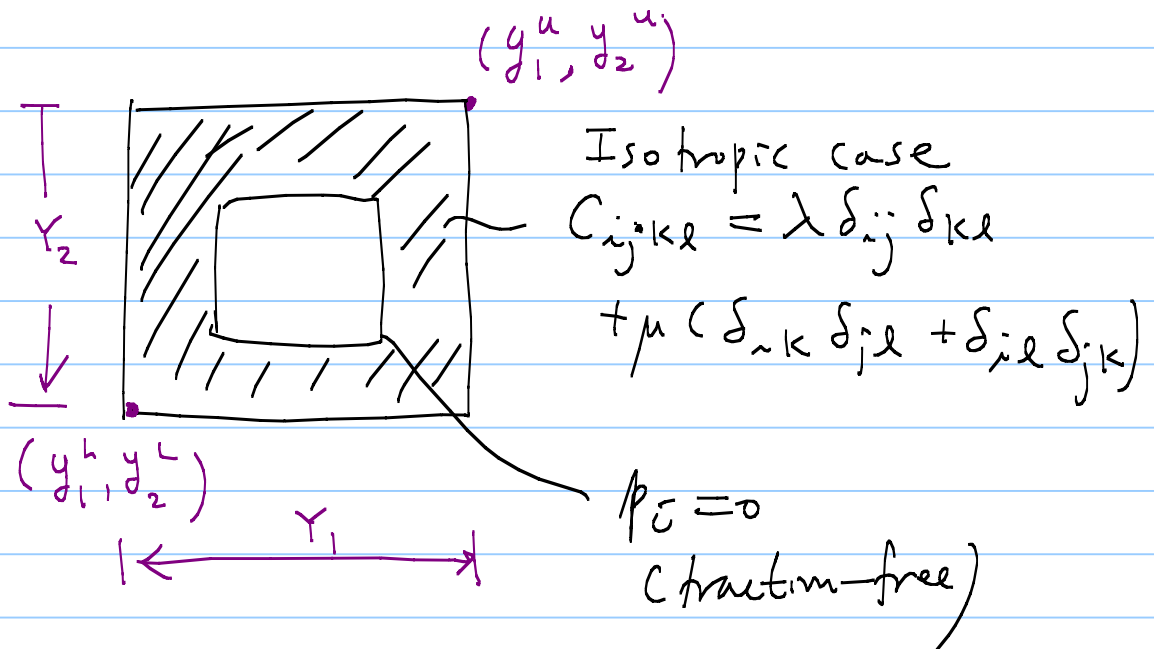 (y₁ᵘ, y₂ᵘ)
Isotropic case
Cᵢⱼₖₗ = λ δᵢⱼ δₖₗ
+ μ (δᵢₖ δⱼₗ + δᵢₗ δⱼₖ)
Y₂
(y₁ᴸ, y₂ᴸ)
Y₁
pᵢ = 0
(traction-free)